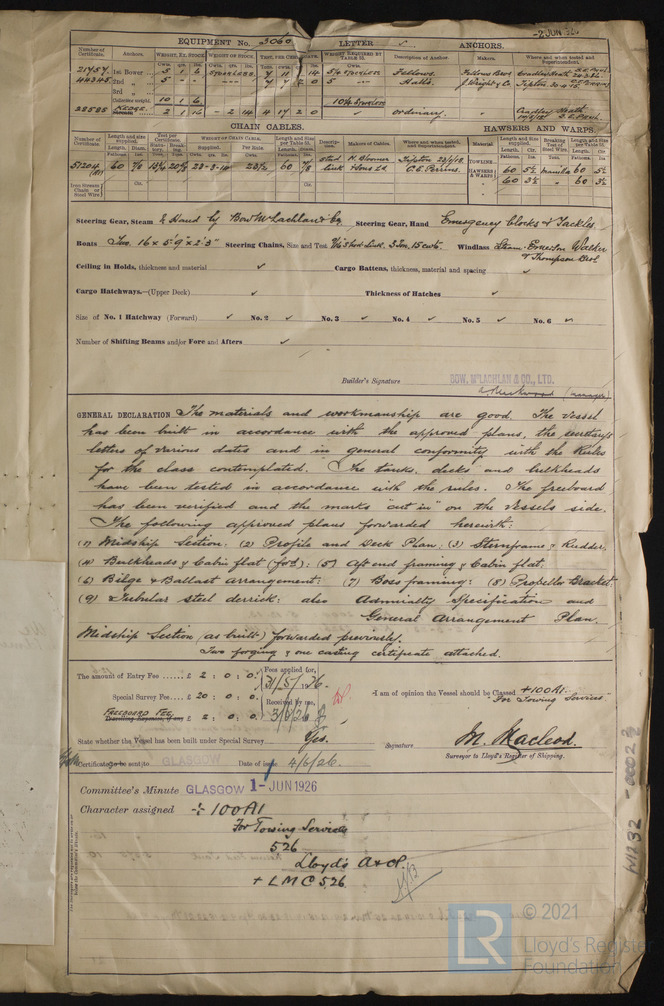 -2 JUN 1926
EQUIPMENT No. 3060 LETTER ✓ ANCHORS.
Number of Certificate. Anchors. WEIGHT, EX. STOCK WEIGHT OF STOCK. TEST, PER CERTIFICATE. WEIGHT REQUIRED BY TABLE 31. Description of Anchor. Makers. Where and when tested and Superintendent.
21757 1st Bower 5 1 6 Stockless 7 11 14 5¼ Stockless Fellows. Fellows Bros Cradley Heath
44345 2nd 5 - - 7 7 2 0 5 - Halls. J. Wright & Co Tipton
3rd „
Collective weight. 10 1 6 10¼ Stockless
28585 KEDGE 2 1 16 - 2 14 4 17 2 0 ✓ ordinary. Cradley Heath
CHAIN CABLES. HAWSERS AND WARPS.
Number of Certificate. Length and size supplied. Test per Certificate. WEIGHT OF CHAIN CABLE. Length and Size per Table 31. Description. Makers of Cables. Where and when tested, and Superintendent. Material Length and Size supplied. Breaking Test of Steel Wire. Length and Size per Table 31.
Fathoms. Supplied. Per Rule. Fathoms. Diam. TOWLINE
51204 60 7/8 28-3-14 60 7/8 stud link N. Bloomer Sons Ld Tipton 22/4/18 C.E. Perrins. HAWSERS & WARPS 60 5½ manila 60 5½
60 3½ " 60 3½
Iron Stream Chain or Steel Wire
Steering Gear, Steam & Hand by Bow McLachlan & Co Steering Gear, Hand Emergency blocks & Tackles
Boats Two. 16' x 5'9" x 2'3" Steering Chains, Size and Test 7/16 stud link. 3 Tons, 15 cwts. Windlass Steam. Emerson Walker & Thompson Bros
Ceiling in Holds, thickness and material ✓ Cargo Battens, thickness, material and spacing ✓
Cargo Hatchways.—(Upper Deck) ✓ Thickness of Hatches ✓
Size of No. 1 Hatchway (Forward) ✓ No. 2 ✓ No. 3 ✓ No. 4 ✓ No. 5 ✓ No. 6 ✓
Number of Shifting Beams and/or Fore and Afters ✓
Builder's Signature BOW, McLACHLAN & CO., LTD.
(manager)
GENERAL DECLARATION The materials and workmanship are good. The vessel
has been built in accordance with the approved plans, the secretarys
letters of various dates and in general conformity with the Rules
for the class contemplated. The tanks, decks and bulkheads
have been tested in accordance with the rules. The freeboard
has been verified and the marks cut in on the vessels side.
The following approved plans forwarded herewith:
(1) Midship Section. (2) Profile and Deck Plan. (3) Sternframe & Rudder.
(4) Bulkheads & Cabin flat (ford): (5) Aft end framing & Cabin flat.
(6) Bilge & Ballast arrangement: (7) Boss framing: (8) Propeller Bracket.
(9) Tubular steel derrick: also Admiralty Specification and
General Arrangement Plan.
Midship Section (as built) forwarded previously.
Two forging & one casting certificate attached.
The amount of Entry Fee ..... £ 2 : 0 : 0 Fees applied for,
31/5/26.
Special Survey Fee .... £ 20 : 0 : 0 Received by me,
FREEBOARD FEE £ 2 : 0 : 0 3/6/26
I am of opinion the Vessel should be Classed +100A1.
"For Towing Services"
State whether the Vessel has been built under Special Survey Yes.
Signature M. Macleod.
Surveyor to Lloyd's Register of Shipping.
Certificate to be sent to GLASGOW Date of issue 4/6/26.
Committee's Minute GLASGOW 1-JUN 1926
Character assigned + 100A1
For Towing Services
5.26
Lloyd's A&CP.
+ LMC 5.26.
W1232-0002
© 2021
LR
Lloyd's Register
Foundation